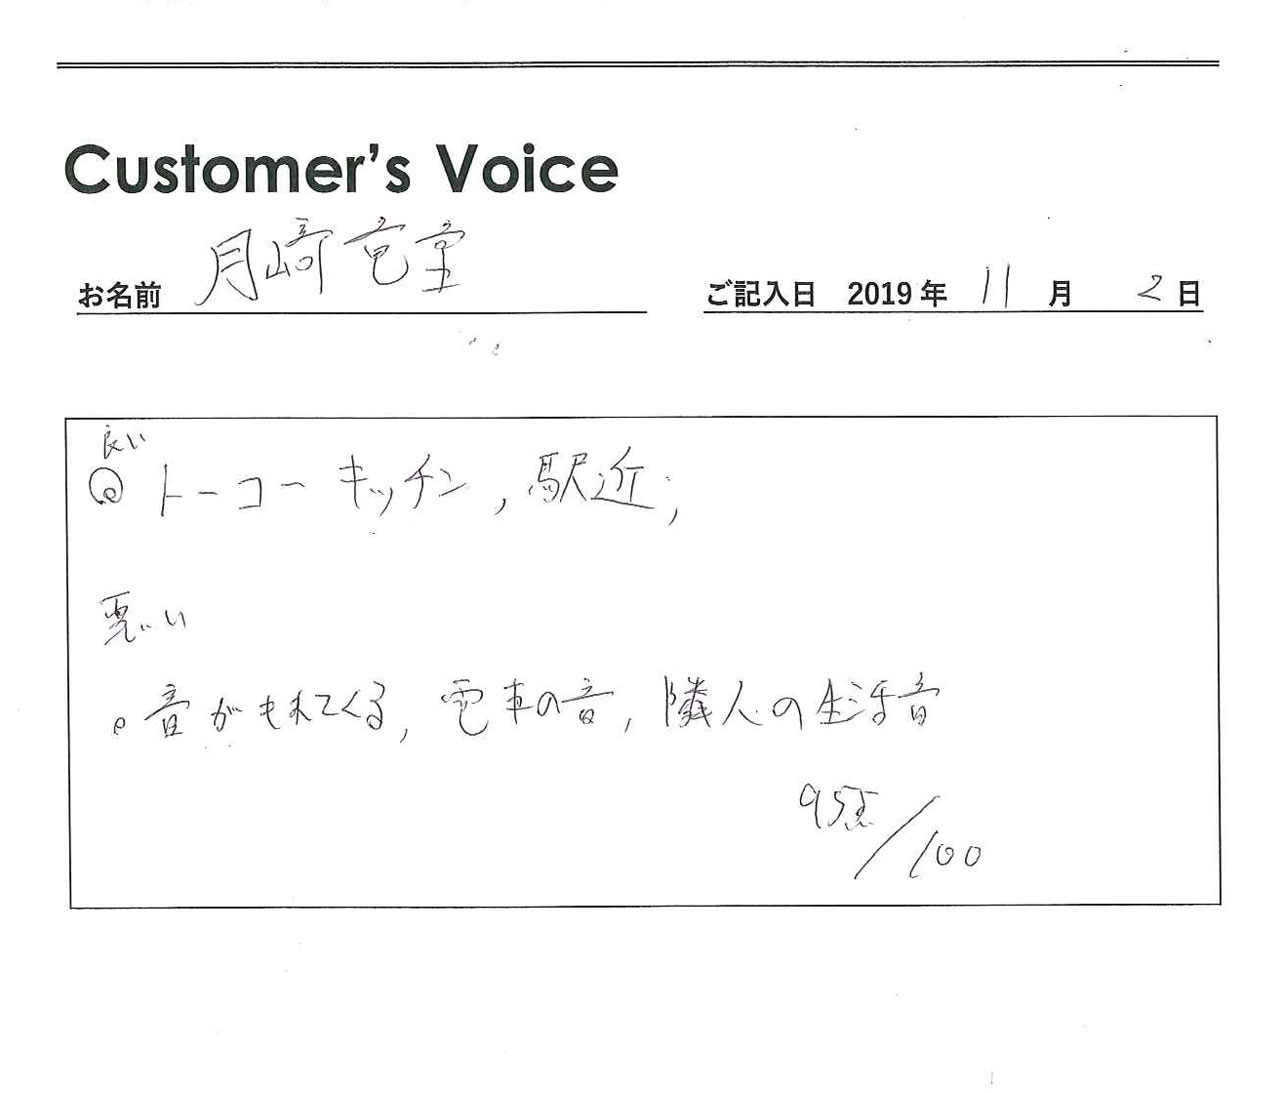 Customer's Voice
お名前 月崎竜堂 ご記入日 2019年 11月 2日
良い
トーコーキッチン, 駅近,
悪い
。音がもれてくる, 電車の音, 隣人の生活音
95点/100